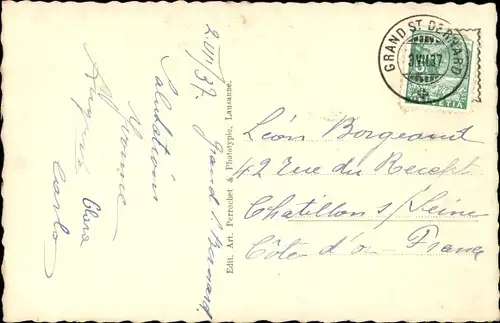 2.VII 37. Grand S. Bernard.
Salutations
Yvonne
August Clara
Carlo
Edit. Art. Perrochet & Phototypie, Lausanne.
GRAND ST BERNARD
3.VII.37
HELVETIA
Léon Borgeaut
42 rue du Recept
Chatillon s/Seine
Côte d'or - France